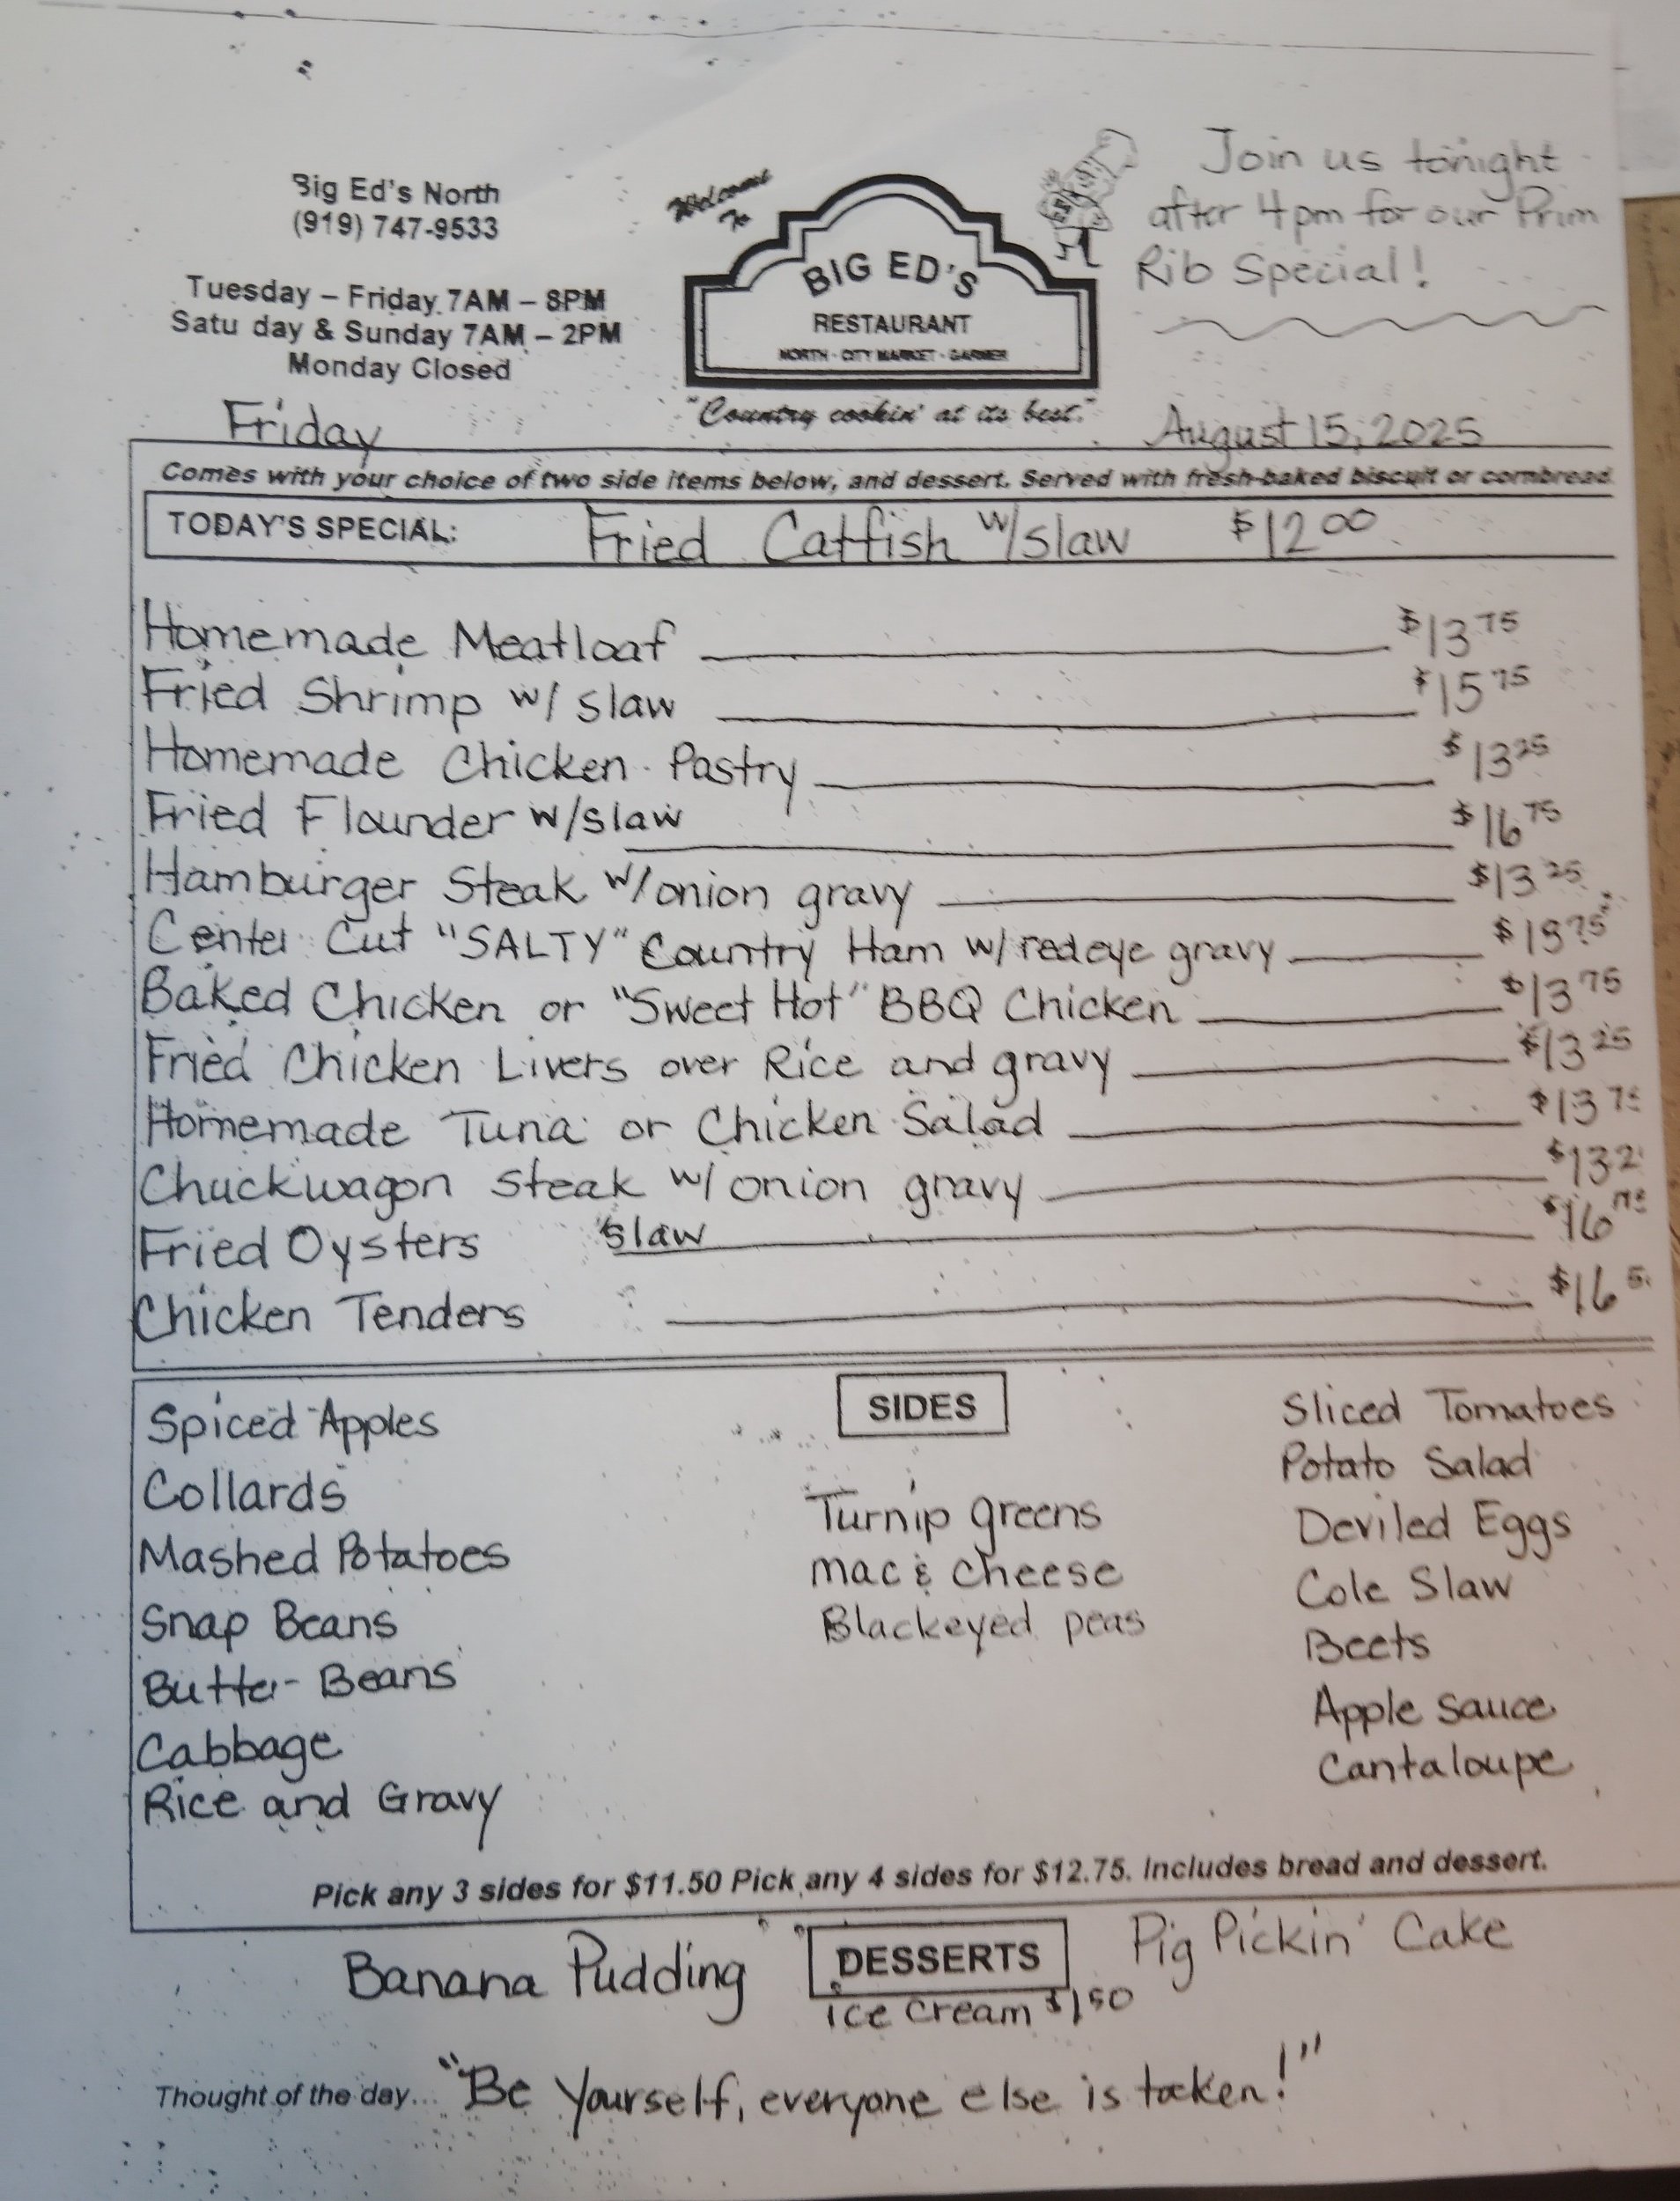 Big Ed's North
(919) 747-9533
Tuesday – Friday 7AM – 8PM
Satu day & Sunday 7AM – 2PM
Monday Closed
Welcome
To
BIG ED'S
RESTAURANT
NORTH - CITY MARKET - GARNER
"Country cookin' at its best."
Join us tonight
after 4pm for our Prim
Rib Special!
Friday
August 15, 2025
Comes with your choice of two side items below, and dessert. Served with fresh-baked biscuit or cornbread.
TODAY'S SPECIAL: Fried Catfish w/slaw $12 00
Homemade Meatloaf $13 75
Fried Shrimp w/ slaw $15 75
Homemade Chicken Pastry $13 25
Fried Flounder w/slaw $16 75
Hamburger Steak w/onion gravy $13 25
Center Cut "SALTY" Country Ham w/ redeye gravy
Baked Chicken or "Sweet Hot" BBQ Chicken $13 75
Fried Chicken Livers over Rice and gravy $13 25
Homemade Tuna or Chicken Salad $13 75
Chuckwagon Steak w/ onion gravy $13 2
Fried Oysters slaw $16 75
Chicken Tenders $16 5
SIDES
Spiced Apples
Collards
Mashed Potatoes
Snap Beans
Butter Beans
Cabbage
Rice and Gravy
Turnip greens
mac & cheese
Blackeyed peas
Sliced Tomatoes
Potato Salad
Deviled Eggs
Cole Slaw
Beets
Apple Sauce
Cantaloupe
Pick any 3 sides for $11.50 Pick any 4 sides for $12.75. Includes bread and dessert.
DESSERTS
Banana Pudding
Ice Cream $1.50
Pig Pickin' Cake
Thought of the day... "Be Yourself, everyone else is taken!"